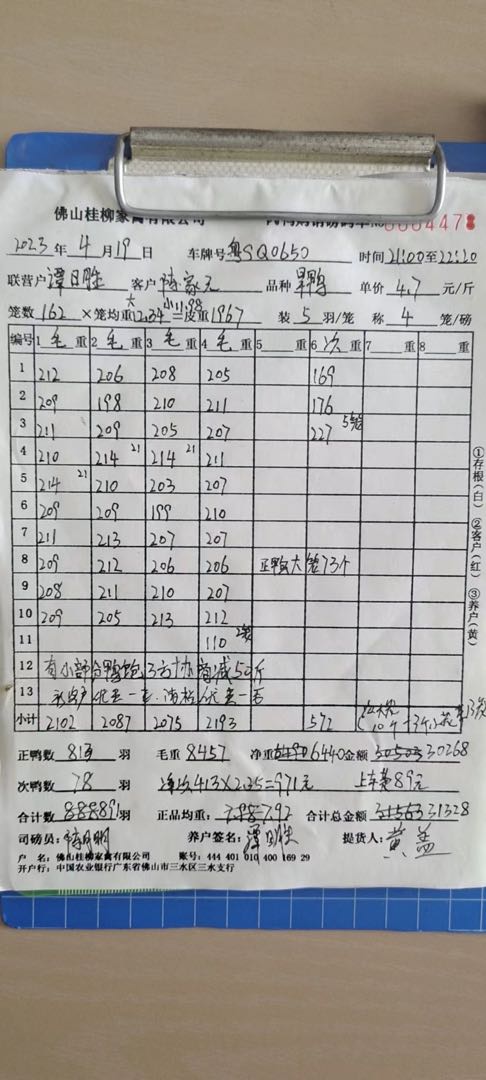 佛山桂柳家禽有限公司
2023年4月19日 车牌号 粤SQ0650 时间21:00至22:20
联营户 谭日胜 客户 陈家元 品种 单价 4.7 元/斤
笼数 162 ×笼均重 大12.34 小11.98 =皮重1967 装 5 羽/笼 称 4 笼/磅
编号 1 毛 重 2 毛 重 3 毛 重 4 毛 重 5 重 6 次 重 7 重 8 重
1 212 206 208 205 169
2 209 198 210 211 176
3 211 209 205 207 227 5笼
4 210 214 21 214 21 211
5 214 21 210 203 207
6 209 209 199 210
7 211 213 207 207
8 209 212 206 206 正鸭 大笼73个
9 208 211 210 207
10 209 205 213 212
11 110 2笼
12 有小部分鸭饱 减50斤
13
小计 2102 2087 2075 2193 572
正鸭数 813 羽 毛重 8457 净重 6440 金额 30268
次鸭数 78 羽 净次413×2.35=971元 上车费89元
合计数 891 羽 正品均重: 7.92 合计总金额 31328
司磅员: 养户签名: 谭日胜 提货人: 黄盖
户 名: 佛山桂柳家禽有限公司 账号: 444 401 010 400 169 29
开户行: 中国农业银行广东省佛山市三水区三水支行
①存根(白) ②客户(红) ③养户(黄)